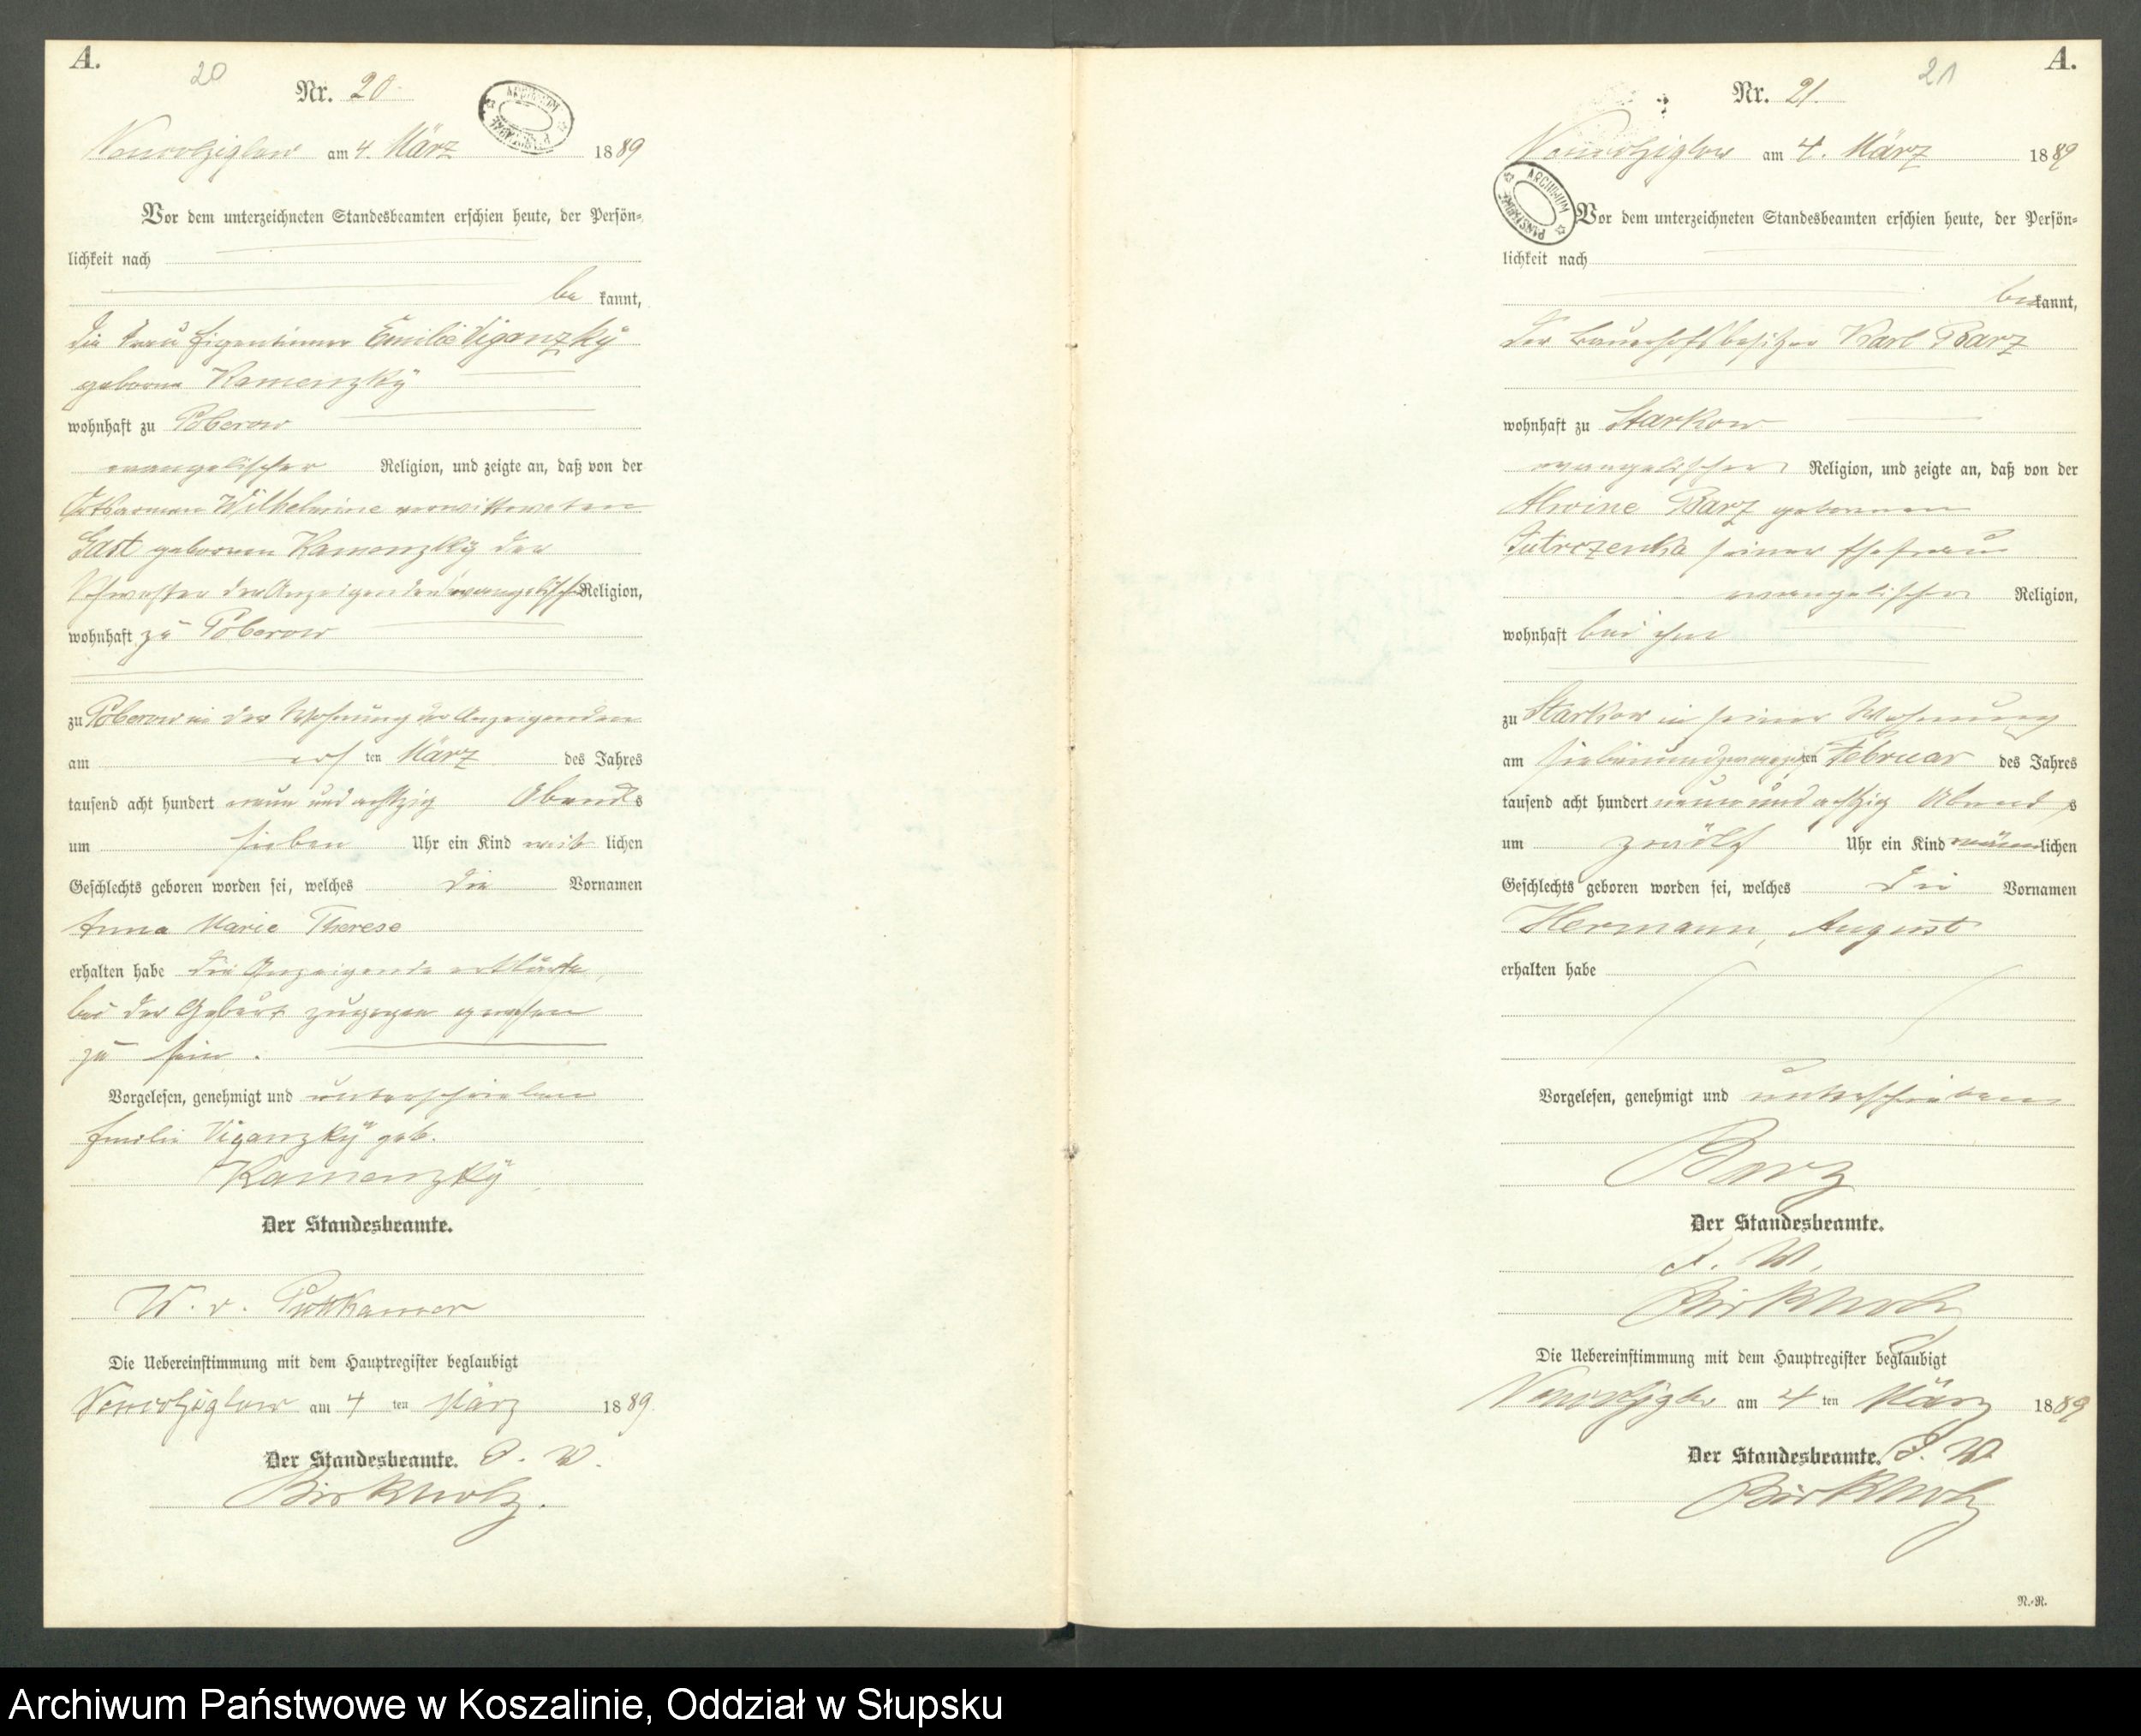 A.
20
Nr. 20
ARCHIWUM PAŃSTWOWE
Nowolziglow am 4. März 1889
Vor dem unterzeichneten Standesbeamten erschien heute, der Persön-
lichkeit nach
be kannt,
die Frau Eigentümer Emilie Viganzky
geborne Kamenzky
wohnhaft zu Poberow
evangelischer Religion, und zeigte an, daß von der
Wilhelmine verwittweten
Gast gebornen Kamenzky der
Schwester der Anzeigenden evangelisch Religion,
wohnhaft zu Poberow
zu Poberow in der Wohnung der Anzeigenden
am ersten März des Jahres
tausend acht hundert neun und achtzig Abends
um sieben Uhr ein Kind weiblichen
Geschlechts geboren worden sei, welches die Vornamen
Anna Marie Therese
erhalten habe die Anzeigende erklärte,
bei der Geburt zugegen gewesen
zu sein.
Vorgelesen, genehmigt und unterschrieben
Emilie Viganzky geb.
Kamenzky
Der Standesbeamte.
W. v. Puttkamer
Die Uebereinstimmung mit dem Hauptregister beglaubigt
Nowolziglow am 4 ten März 1889.
Der Standesbeamte. J. V.
Birkholz.
A.
21
Nr. 21.
Nowolziglow am 4. März 1889
ARCHIWUM PAŃSTWOWE
Vor dem unterzeichneten Standesbeamten erschien heute, der Persön-
lichkeit nach
bekannt,
der Bauerhofsbesitzer Karl Barz
wohnhaft zu Starkow
evangelischer Religion, und zeigte an, daß von der
Alwine Barz gebornen
Jutrczenka seiner Ehefrau
evangelischer Religion,
wohnhaft bei ihm
zu Starkow in seiner Wohnung
am siebenundzwanzigsten Februar des Jahres
tausend acht hundert neun und achtzig Abends
um zwölf Uhr ein Kind männlichen
Geschlechts geboren worden sei, welches die Vornamen
Hermann, August
erhalten habe
Vorgelesen, genehmigt und unterschrieben
Barz
Der Standesbeamte.
J. V.
Birkholz
Die Uebereinstimmung mit dem Hauptregister beglaubigt
Nowolziglow am 4 ten März 1889
Der Standesbeamte. J. V.
Birkholz
N.-R.
Archiwum Państwowe w Koszalinie, Oddział w Słupsku